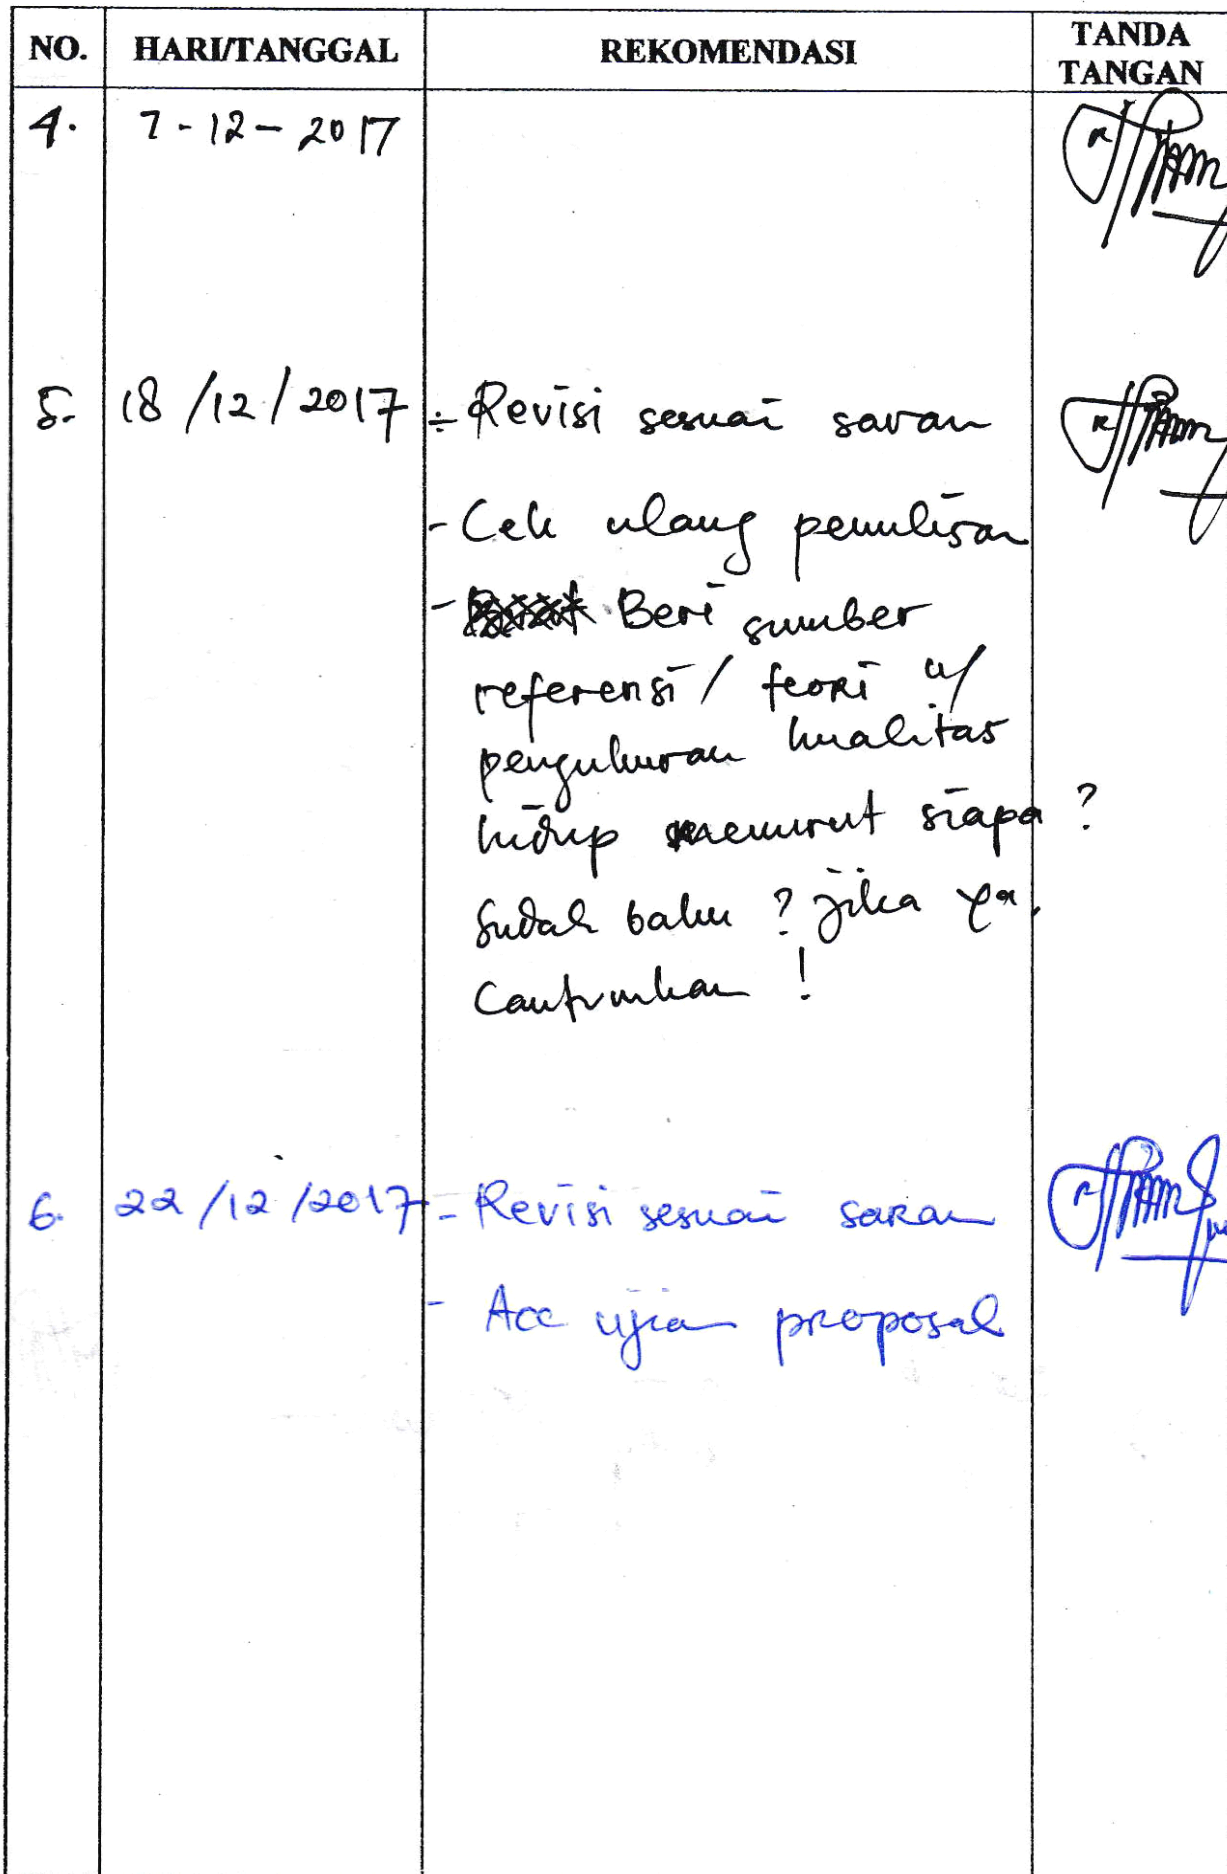 NO. HARI/TANGGAL REKOMENDASI TANDA TANGAN
4. 7-12-2017
5. 18/12/2017 - Revisi sesuai saran
- Cek ulang penulisan
- Beri sumber
referensi/ teori u/
pengukuran kualitas
hidup menurut siapa ?
Sudah baku ? jika ya,
Cantumkan !
6. 22/12/2017 - Revisi sesuai saran
- Acc ujian proposal